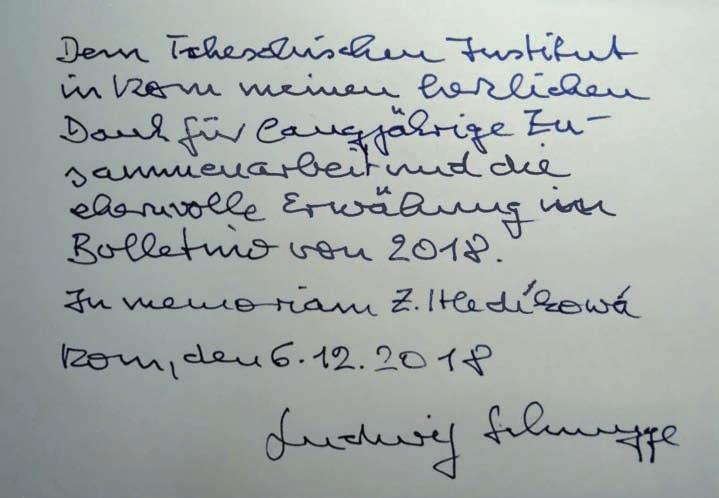 Dem Tcheschischen Institut
in Rom meinen herzlichen
Dank für langjährige Zu-
sammenarbeit und die
ehrenvolle Erwähnung im
Bolletino von 2018.
In memoriam Z. Hledíkowá
Rom, den 6.12.2018
Ludwig Schmugge